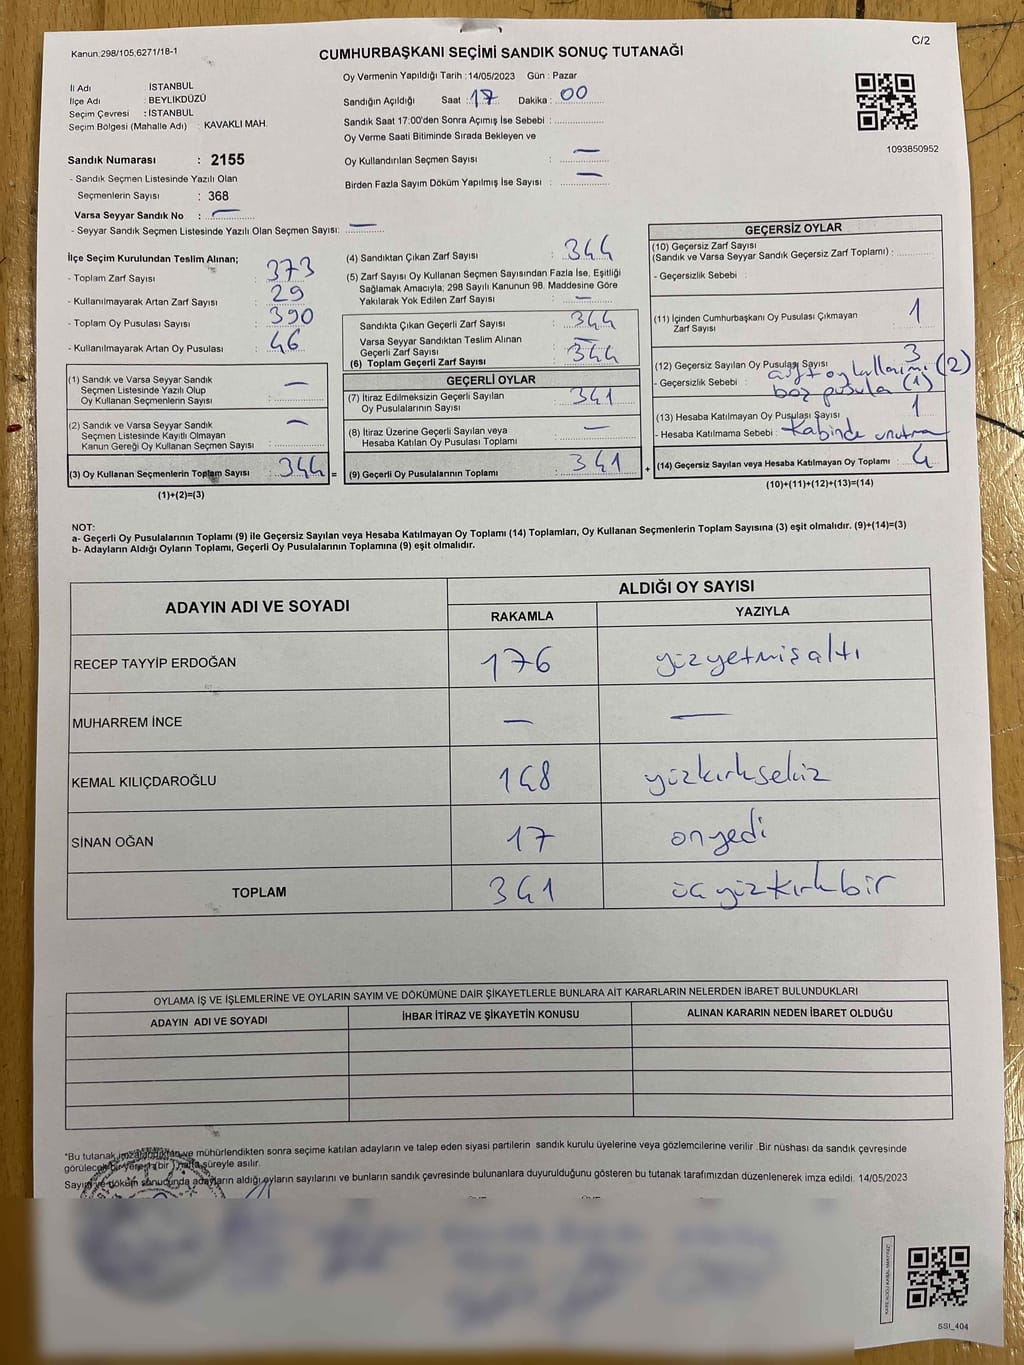 Kanun;298/105,6271/18-1
C/2
CUMHURBAŞKANI SEÇİMİ SANDIK SONUÇ TUTANAĞI
İl Adı : İSTANBUL
İlçe Adı : BEYLİKDÜZÜ
Seçim Çevresi : İSTANBUL
Seçim Bölgesi (Mahalle Adı) : KAVAKLI MAH.
Oy Vermenin Yapıldığı Tarih :14/05/2023 Gün : Pazar
Sandığın Açıldığı Saat : 17 Dakika : 00
Sandık Saat 17:00'den Sonra Açımış İse Sebebi :
Oy Verme Saati Bitiminde Sırada Bekleyen ve
Oy Kullandırılan Seçmen Sayısı : —
Birden Fazla Sayım Döküm Yapılmış İse Sayısı : —
1093850952
Sandık Numarası : 2155
- Sandık Seçmen Listesinde Yazılı Olan
Seçmenlerin Sayısı : 368
Varsa Seyyar Sandık No : —
- Seyyar Sandık Seçmen Listesinde Yazılı Olan Seçmen Sayısı: —
İlçe Seçim Kurulundan Teslim Alınan;
- Toplam Zarf Sayısı : 373
- Kullanılmayarak Artan Zarf Sayısı : 29
- Toplam Oy Pusulası Sayısı : 390
- Kullanılmayarak Artan Oy Pusulası : 46
(1) Sandık ve Varsa Seyyar Sandık
Seçmen Listesinde Yazılı Olup
Oy Kullanan Seçmenlerin Sayısı : —
(2) Sandık ve Varsa Seyyar Sandık
Seçmen Listesinde Kayıtlı Olmayan
Kanun Gereği Oy Kullanan Seçmen Sayısı : —
(3) Oy Kullanan Seçmenlerin Toplam Sayısı : 344 =
(1)+(2)=(3)
(4) Sandıktan Çıkan Zarf Sayısı : 344
(5) Zarf Sayısı Oy Kullanan Seçmen Sayısından Fazla İse, Eşitliği
Sağlamak Amacıyla; 298 Sayılı Kanunun 98. Maddesine Göre
Yakılarak Yok Edilen Zarf Sayısı : —
Sandıkta Çıkan Geçerli Zarf Sayısı : 344
Varsa Seyyar Sandıktan Teslim Alınan
Geçerli Zarf Sayısı : —
(6) Toplam Geçerli Zarf Sayısı : 344
GEÇERLİ OYLAR
(7) İtiraz Edilmeksizin Geçerli Sayılan
Oy Pusulalarının Sayısı : 341
(8) İtiraz Üzerine Geçerli Sayılan veya
Hesaba Katılan Oy Pusulası Toplamı : —
(9) Geçerli Oy Pusulalarının Toplamı : 341 +
GEÇERSİZ OYLAR
(10) Geçersiz Zarf Sayısı
(Sandık ve Varsa Seyyar Sandık Geçersiz Zarf Toplamı) :
- Geçersizlik Sebebi :
(11) İçinden Cumhurbaşkanı Oy Pusulası Çıkmayan
Zarf Sayısı : 1
(12) Geçersiz Sayılan Oy Pusulası Sayısı : 3
- Geçersizlik Sebebi : çift oy kullanımı (2)
boş pusula (1)
(13) Hesaba Katılmayan Oy Pusulası Sayısı : 1
- Hesaba Katılmama Sebebi : Kabinde unutma
(14) Geçersiz Sayılan veya Hesaba Katılmayan Oy Toplamı : 4
(10)+(11)+(12)+(13)=(14)
NOT:
a- Geçerli Oy Pusulalarının Toplamı (9) ile Geçersiz Sayılan veya Hesaba Katılmayan Oy Toplamı (14) Toplamları, Oy Kullanan Seçmenlerin Toplam Sayısına (3) eşit olmalıdır. (9)+(14)=(3)
b- Adayların Aldığı Oyların Toplamı, Geçerli Oy Pusulalarının Toplamına (9) eşit olmalıdır.
ADAYIN ADI VE SOYADI
ALDIĞI OY SAYISI
RAKAMLA YAZIYLA
RECEP TAYYİP ERDOĞAN 176 yüzyetmişaltı
MUHARREM İNCE — —
KEMAL KILIÇDAROĞLU 148 yüzkırksekiz
SİNAN OĞAN 17 onyedi
TOPLAM 341 üçyüzkırkbir
OYLAMA İŞ VE İŞLEMLERİNE VE OYLARIN SAYIM VE DÖKÜMÜNE DAİR ŞİKAYETLERLE BUNLARA AİT KARARLARIN NELERDEN İBARET BULUNDUKLARI
ADAYIN ADI VE SOYADI İHBAR İTİRAZ VE ŞİKAYETİN KONUSU ALINAN KARARIN NEDEN İBARET OLDUĞU
*Bu tutanak imzalandıktan ve mühürlendikten sonra seçime katılan adayların ve talep eden siyasi partilerin sandık kurulu üyelerine veya gözlemcilerine verilir. Bir nüshası da sandık çevresinde
görülecek bir yere 1 (bir) hafta süreyle asılır.
Sayım ve döküm sonucunda adayların aldığı oyların sayılarını ve bunların sandık çevresinde bulunanlara duyurulduğunu gösteren bu tutanak tarafımızdan düzenlenerek imza edildi. 14/05/2023
SSI_404